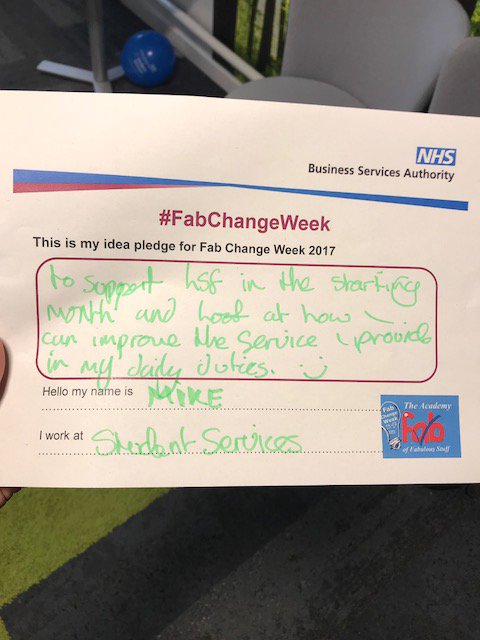 NHS
Business Services Authority
#FabChangeWeek
This is my idea pledge for Fab Change Week 2017
to support hsf in the starting
month and look at how I
can improve the service I provide
in my daily duties.
Hello my name is MIKE
I work at Student Services
The Academy
Fab
of Fabulous Stuff
Fab
Change
Week